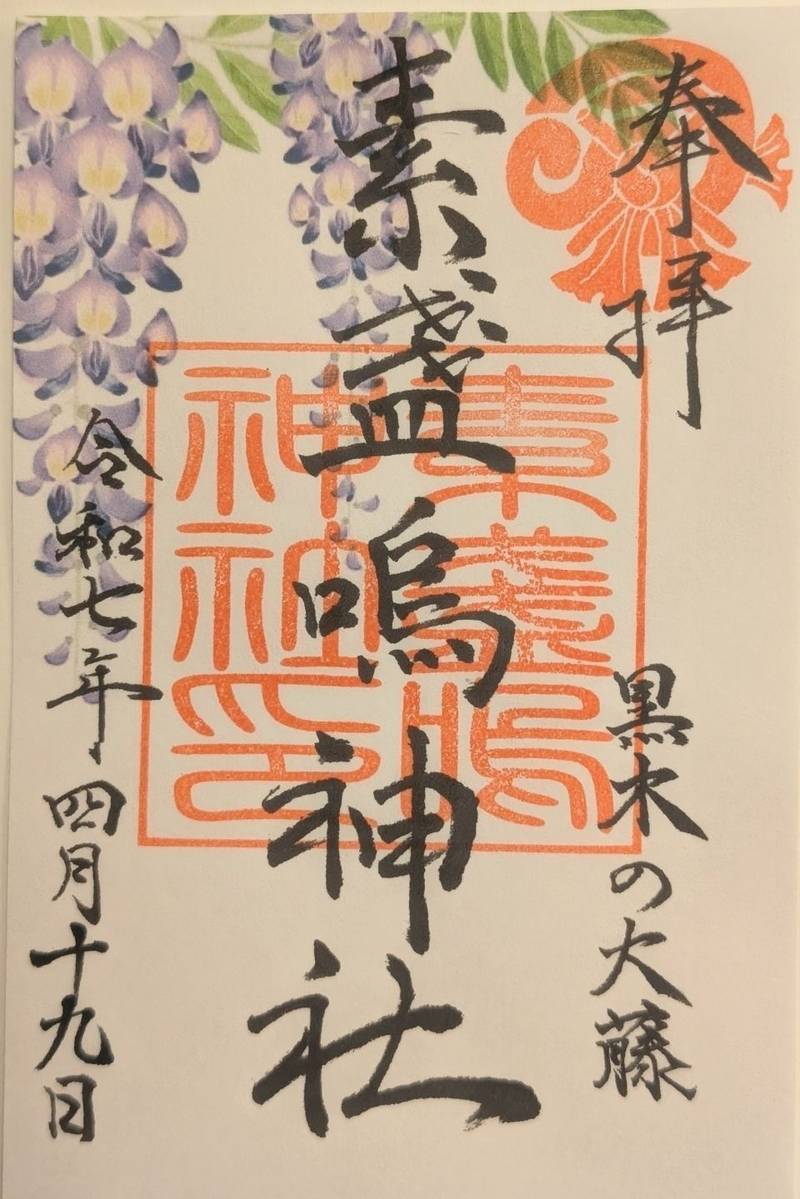 奉拝
黒木の大藤
素盞嗚神社
素盞嗚
神社印
令和七年四月十九日